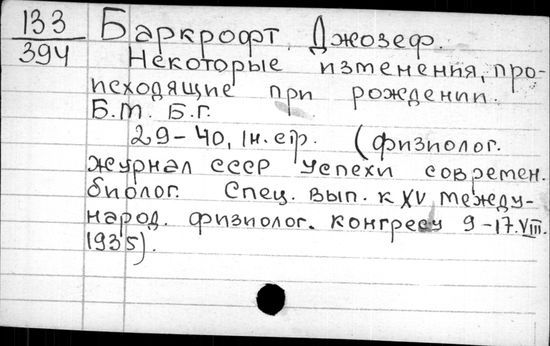 133 Баркрофт, Джозеф.
394 Некоторые изменения, про-
исходящие при рождении.
Б.м. Б.г.
29-40, 1н. стр. (физиолог.
журнал СССР Успехи современ.
биолог. Спец. вып. к XV между-
народ. физиолог. конгрессу 9-17.VIII.
1935).